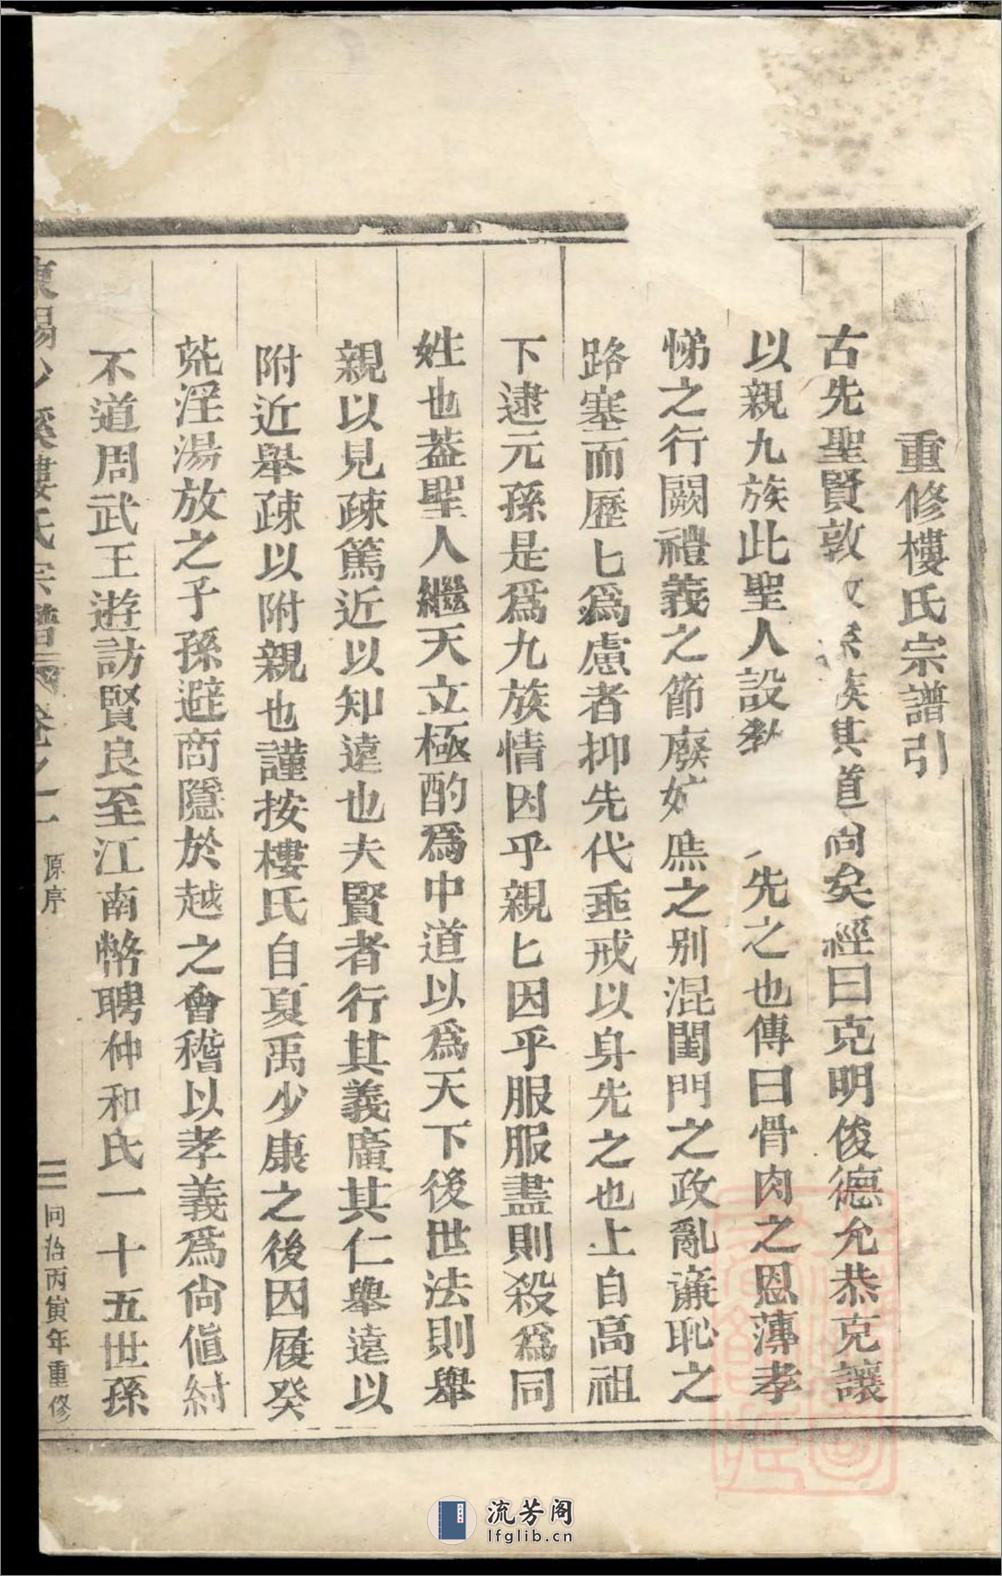 重修樓氏宗譜引
古先聖賢敦族其道尚矣經曰克明俊德允恭克讓
以親九族此聖人設先之也傳曰骨肉之恩薄孝
悌之行闕禮義之節廢嫡庶之別混閨門之政亂廉恥之
路塞而歷匕爲慮者抑先代垂戒以身先之也上自高祖
下逮元孫是爲九族情因乎親匕因乎服服盡則殺爲同
姓也葢聖人繼天立極酌爲中道以爲天下後世法則舉
親以見疎篤近以知遠也夫賢者行其義廣其仁舉遠以
附近舉疎以附親也謹按樓氏自夏禹少康之後因履癸
荒淫湯放之子孫避商隱於越之會稽以孝義爲尙傎紂
不道周武王遊訪賢良至江南幣聘仲和氏一十五世孫
東陽少溪樓氏宗譜 卷之一 原序 二 同治丙寅年重修
流芳阁
lfglib.cn